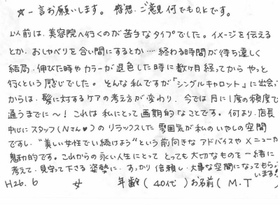 ☆一言お願いします。感想、ご意見 何でもO.Kです。
以前は、美容院へ行くのが苦手なタイプでした。イメージを伝える
とか、おしゃべりを合い間にするとか… 終わる時間が待ち遠しく
結局、伸びた時やカラーが退色した時に数ヶ月経ってからやっと
行くという感じでした。そんな私ですが「シングルキャロット」に出会い
からは、髪に対するケアの考え方が変わり、今では月に1度の頻度で
通うまでに〜! これは私にとって画期的なことです。何より、店長
中心にスタッフ(Nさん♡)のリラックスした雰囲気が私のいやしの空間
ですし、"美しい女性でい続けよう"という前向きなアドバイスやメニューが
魅力的です。これからの永い人生にとって とっても大切なものを一緒に
考えて、見守って下さる姿勢に、すっかり信頼し、大事な空間になってもらい
ます!
H26.6 年齢(40代)お名前(M.T